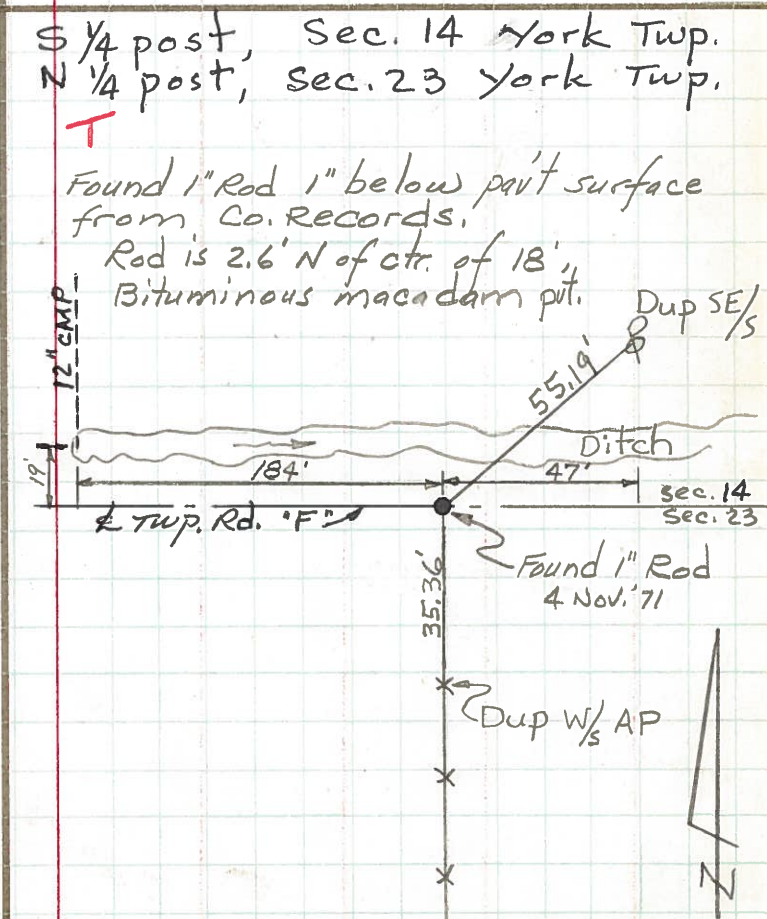 S 1/4 post, Sec. 14 York Twp.
N 1/4 post, Sec. 23 York Twp.
T
Found 1" Rod 1" below pav't surface
from Co. Records.
Rod is 2.6' N of ctr. of 18',
Bituminous macadam pvt.
12" CMP
Dup SE/s
55.19'
Ditch
19'
184'
47'
sec. 14
Sec. 23
℄ Twp. Rd. "F"
35.36'
Found 1" Rod
4 Nov. '71
Dup W/s AP
N